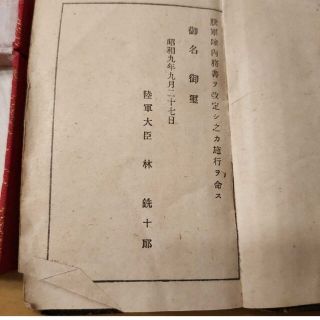 陸軍隊內務書ヲ改定シ之カ施行ヲ命ス
御名御璽
昭和九年九月二十七日
陸軍大臣 林 銑十郎